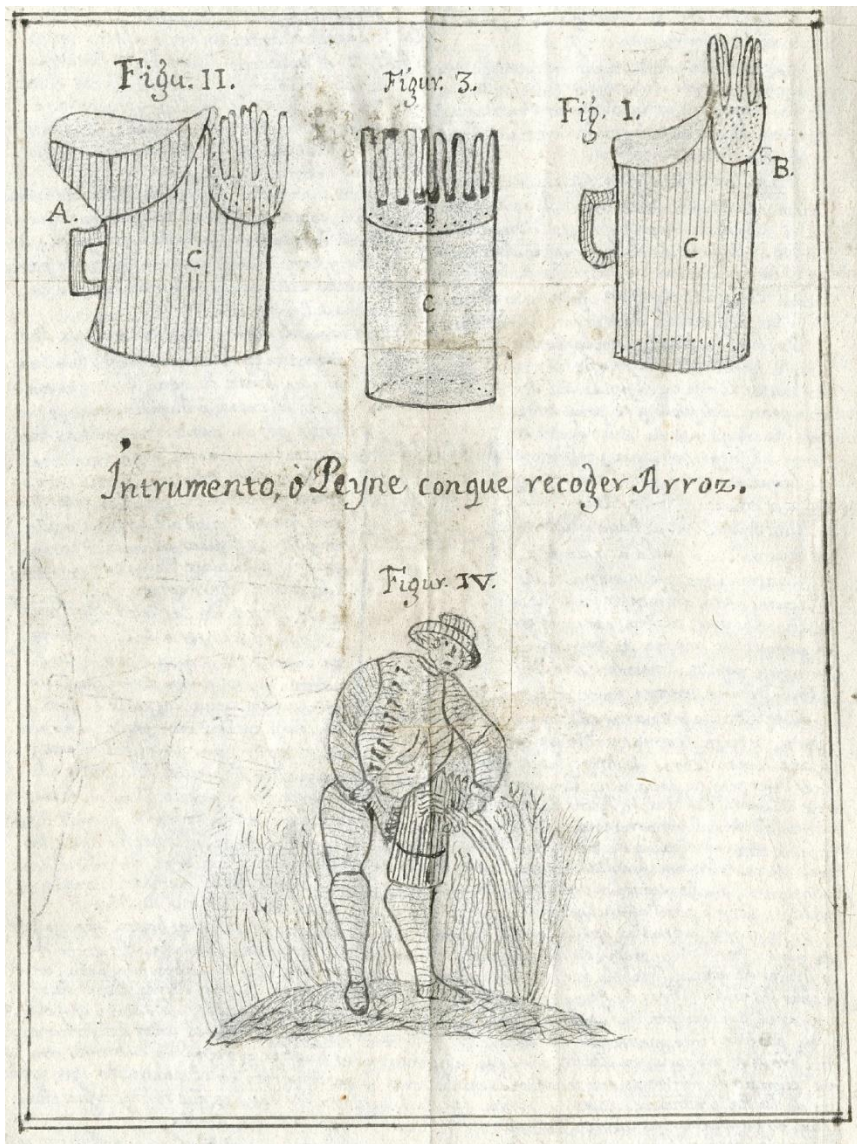 Figu. II.
Figur. 3.
Fig. I.
A.
B.
B
C
C
C
Intrumento, ò Peyne conque recoger Arroz.
Figur. IV.